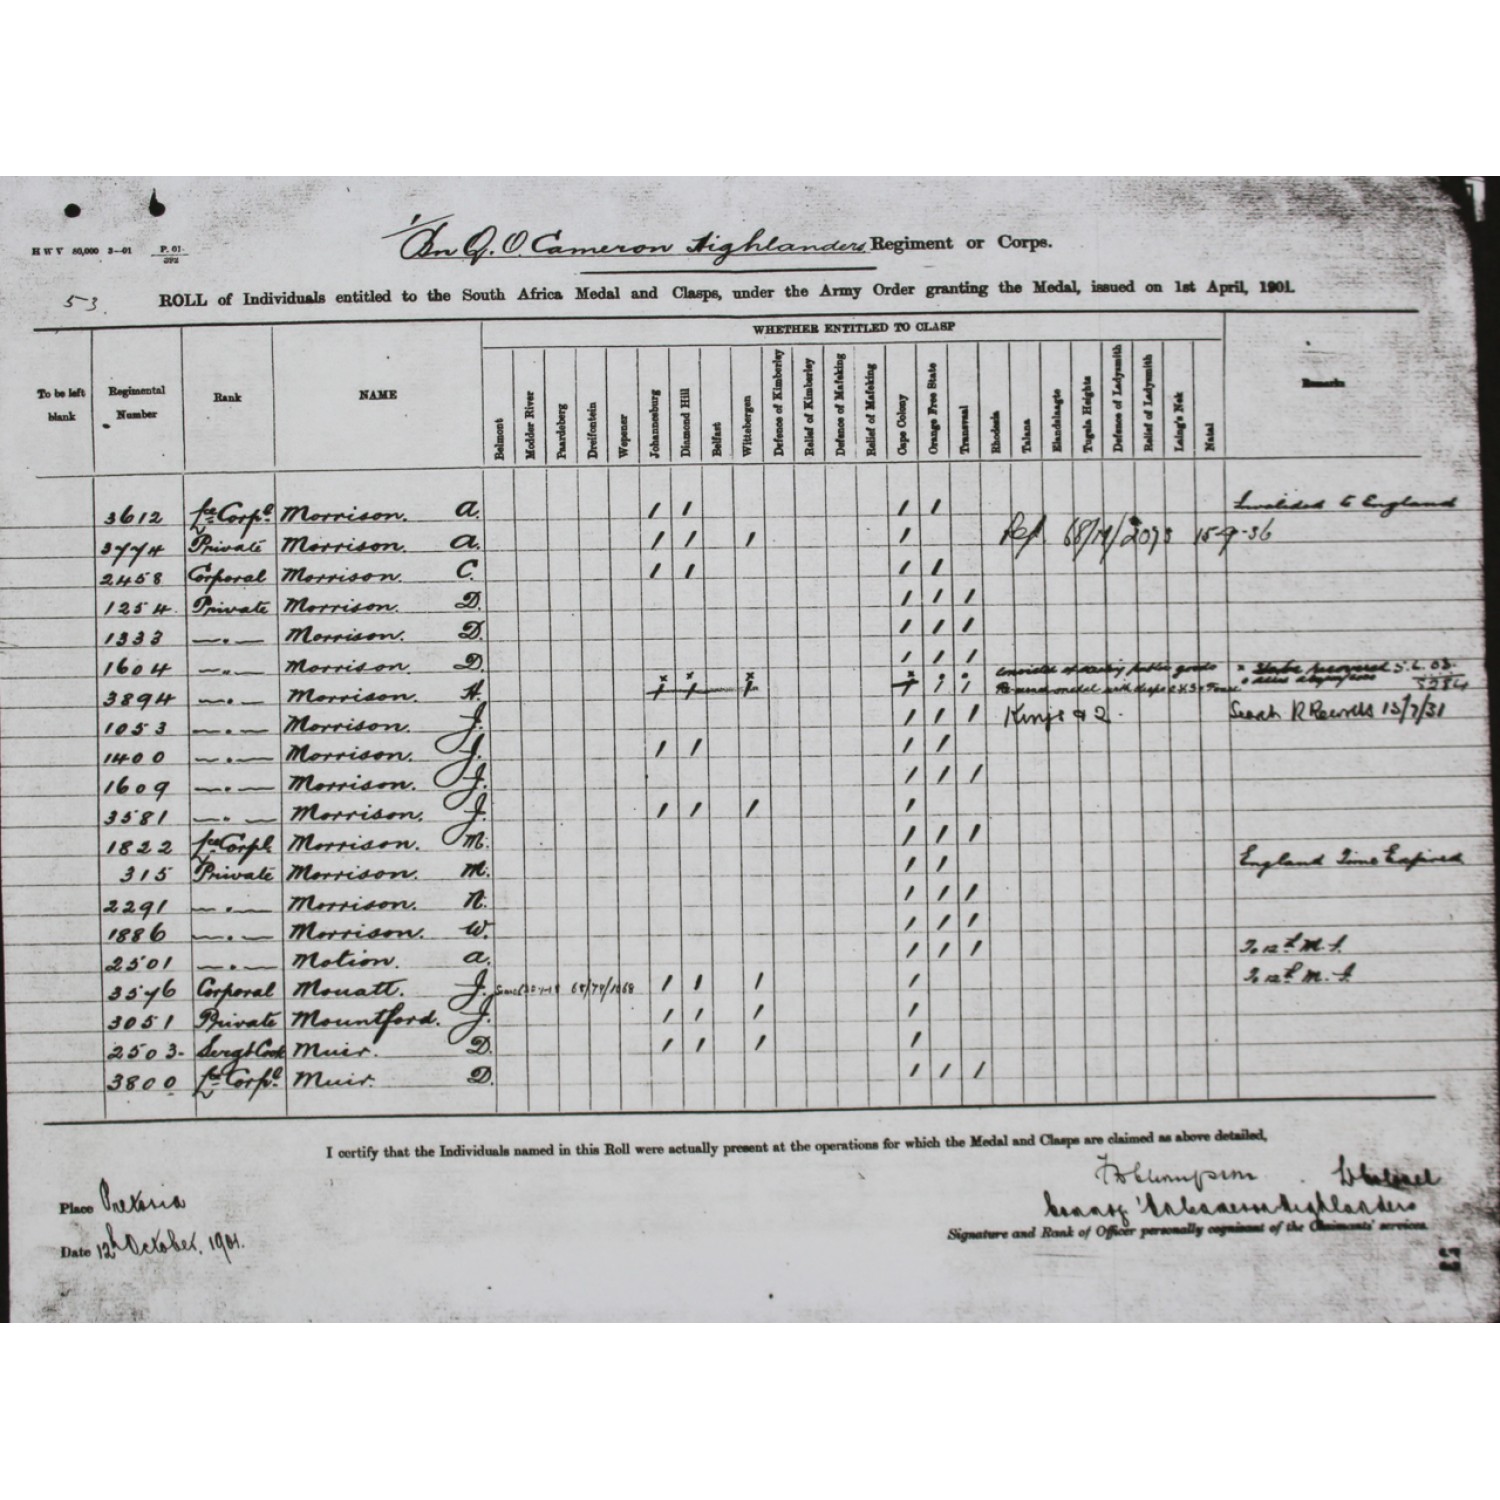 1/Bn Q. O. Cameron Highlanders Regiment or Corps.
H W V 80,000 3—01 P. 01.
53. ROLL of Individuals entitled to the South Africa Medal and Clasps, under the Army Order granting the Medal, issued on 1st April, 1901.
WHETHER ENTITLED TO CLASP
To be left blank Regimental Number Rank NAME Belmont Modder River Paardeberg Dreifontein Wepener Johannesburg Diamond Hill Belfast Wittebergen Defence of Kimberley Relief of Kimberley Defence of Mafeking Relief of Mafeking Cape Colony Orange Free State Transvaal Rhodesia Talana Elandslaagte Tugela Heights Defence of Ladysmith Relief of Ladysmith Laing's Nek Natal Remarks
3612 Lce Corpl Morrison. A. / / / / Invalided to England
3774 Private Morrison. A. / / / / 15-9-36
2458 Corporal Morrison. C. / / / /
1254 Private Morrison. D. / / /
1333 —"— Morrison. D. / / /
1604 —"— Morrison. D. / / /
3894 —"— Morrison. A. / / / / / / public goods recovered
1053 —"— Morrison. J. / / / 13/7/31
1400 —"— Morrison. J. / / / /
1609 —"— Morrison. J. / / /
3581 —"— Morrison. J. / / / /
1822 Lce Corpl Morrison. M. / / /
315 Private Morrison. M. / / England Time Expired
2291 —"— Morrison. N. / / /
1886 —"— Morrison. W. / / /
2501 —"— Motion. A. / / / To 12th M. I.
3576 Corporal Mouatt. J. / / / / To 12th M. I.
3051 Private Mountford. J. / / / /
2503. Sergt Cook Muir. D. / / / /
3800 Lce Corpl Muir. D. / / /
I certify that the Individuals named in this Roll were actually present at the operations for which the Medal and Clasps are claimed as above detailed,
Place Pretoria
Date 12th October, 1901.
Signature and Rank of Officer personally cognizant of the Claimants' services.